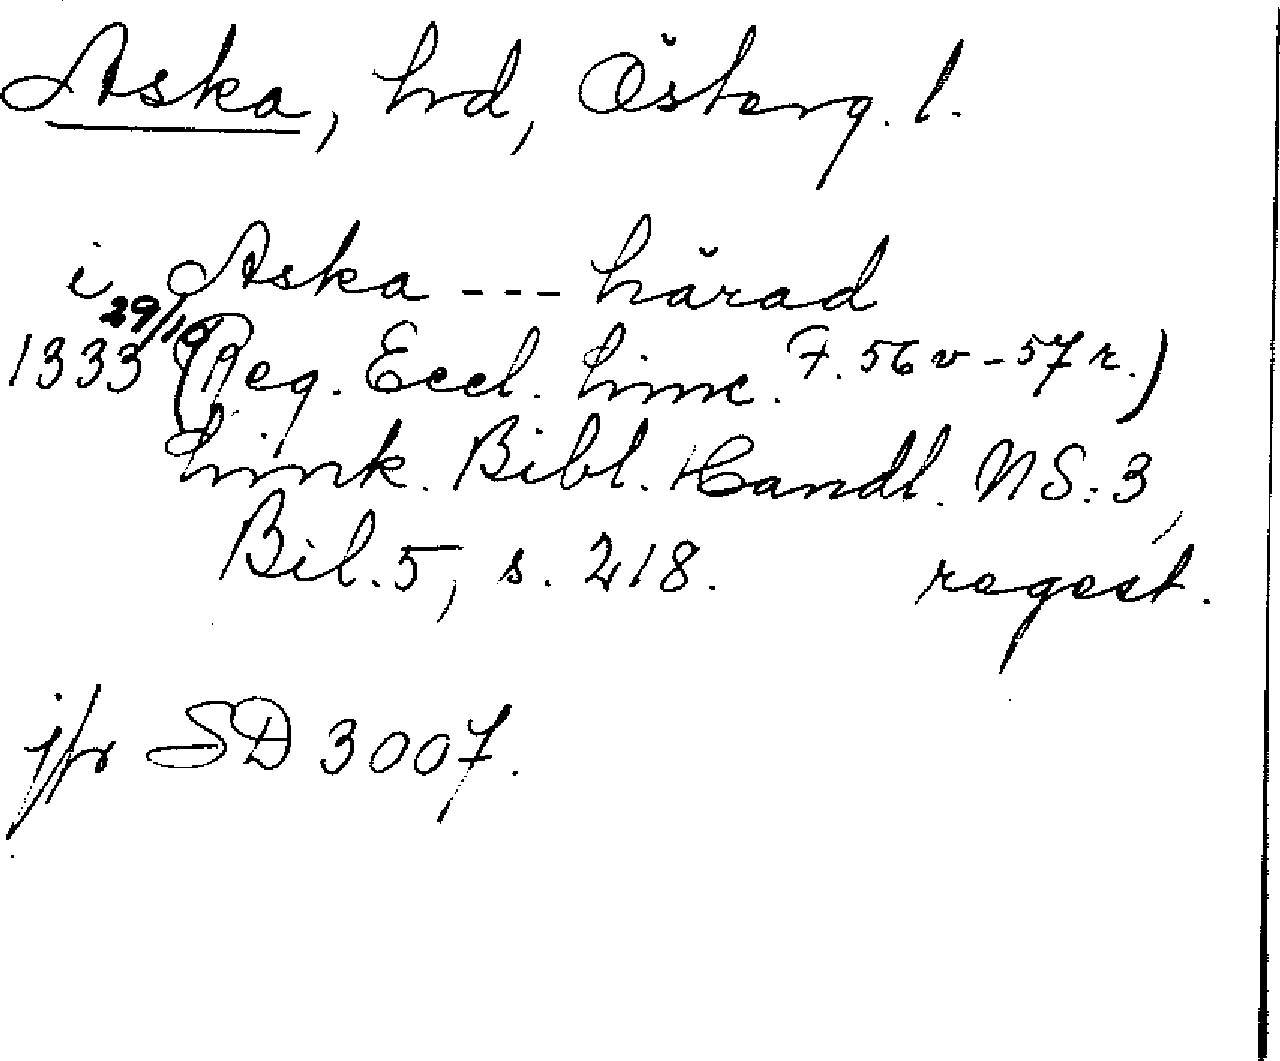 Aska, hrd, Österg. l.
i Aska --- härad
1333 29/10 (Reg. Eccl. Linc. F. 56 v - 57 r.)
Link. Bibl. Handl. NS: 3,
Bil. 5, s. 218. regest.
jfr SD 3007.